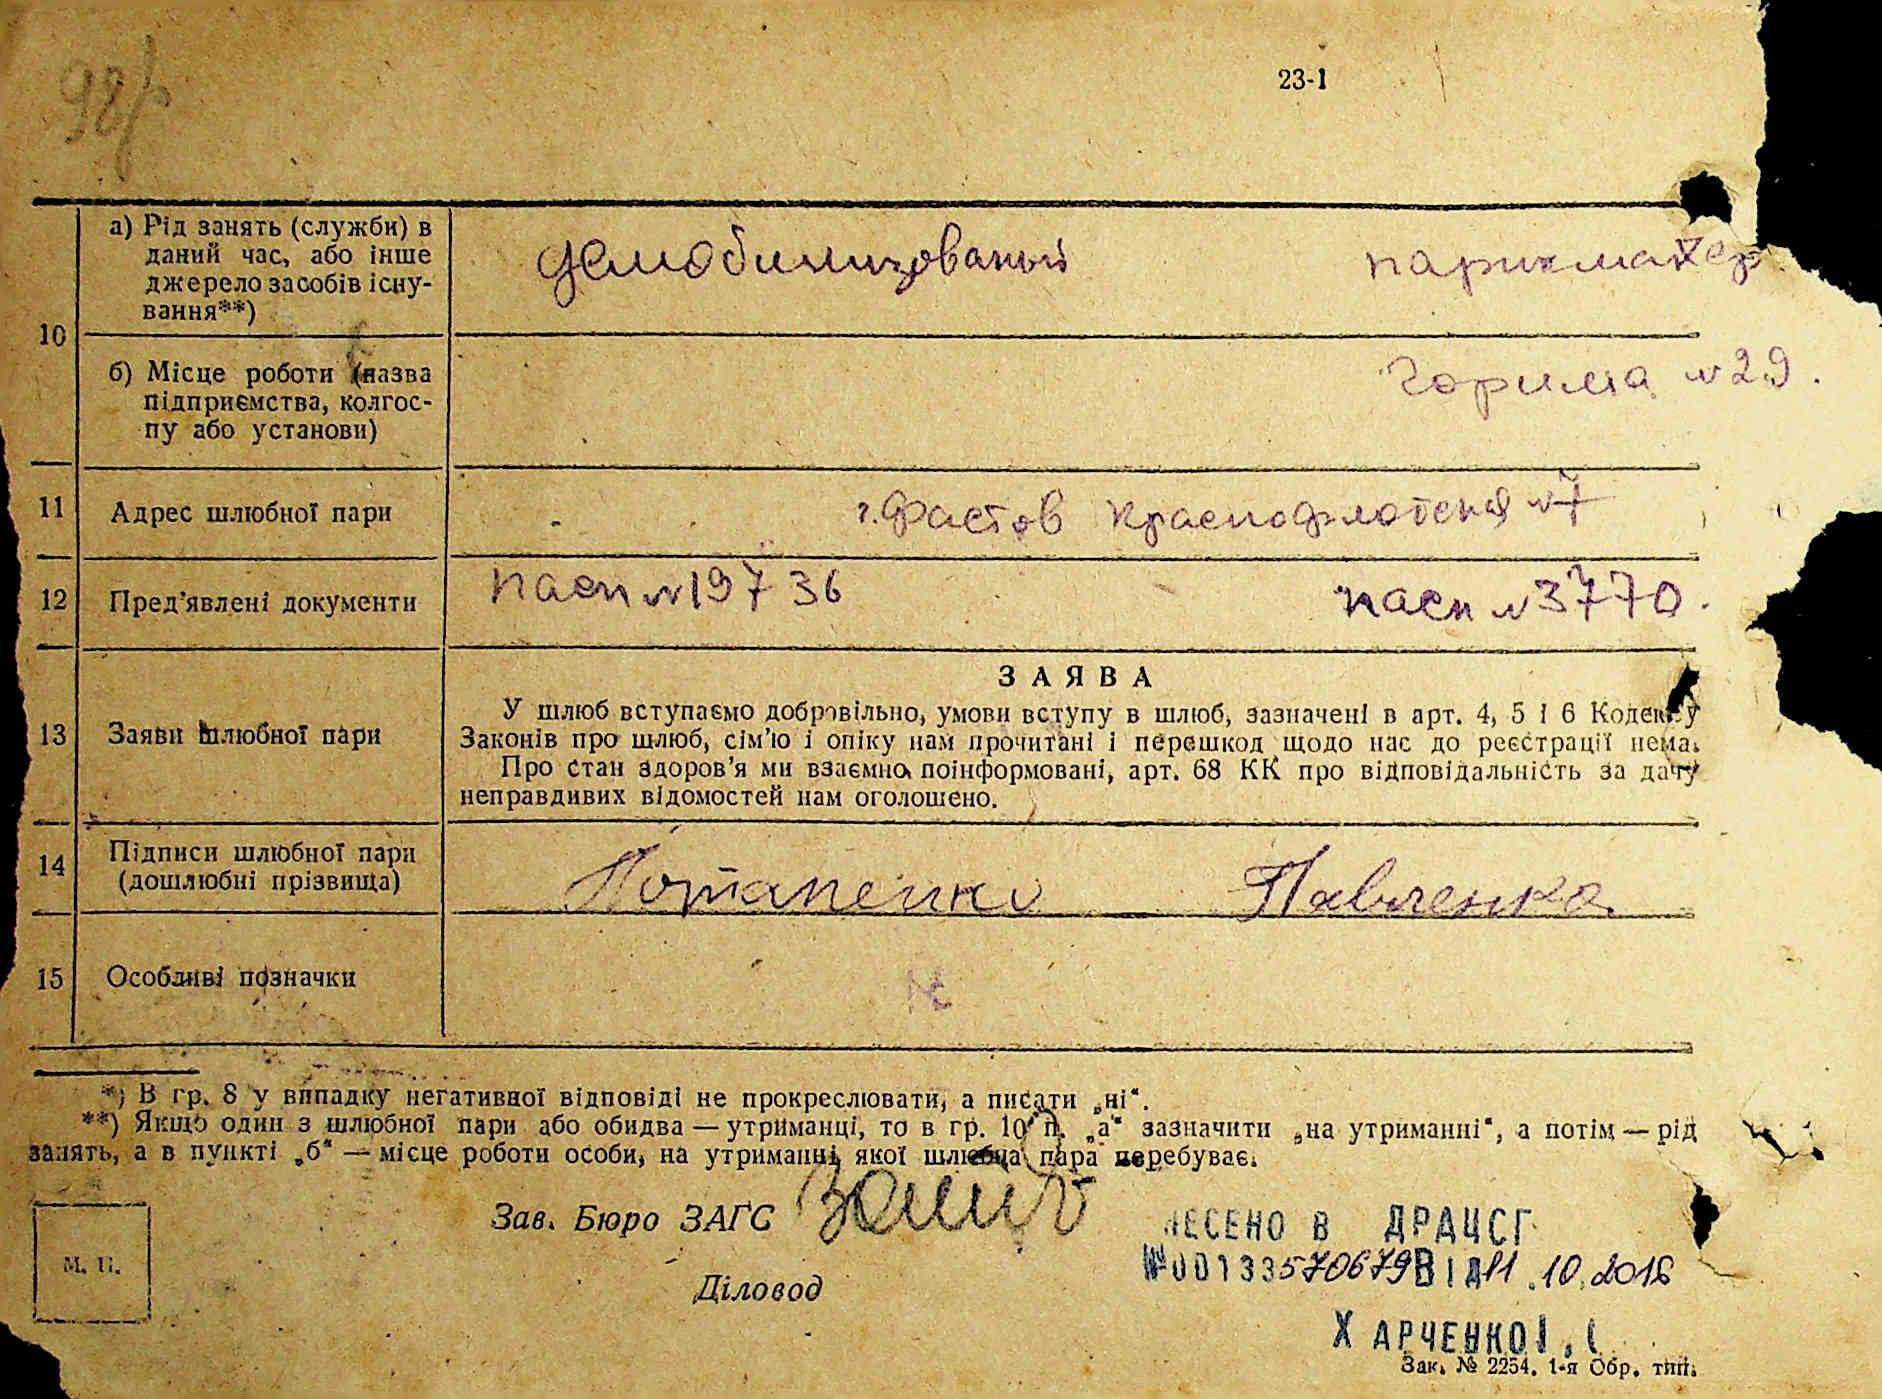 23-1
98
10
а) Рід занять (служби) в
даний час, або інше
джерело засобів існу-
вання**)
демобилизованый парикмахер
б) Місце роботи (назва
підприємства, колгос-
пу або установи)
№ 29.
11 Адрес шлюбної пари г. Фастов Краснофлотская № 7
12 Пред’явлені документи пасп № 19736 пасп № 3770.
13 Заяви шлюбної пари
ЗАЯВА
У шлюб вступаємо добровільно, умови вступу в шлюб, зазначені в арт. 4, 5 і 6 Кодексу
Законів про шлюб, сім’ю і опіку нам прочитані і перешкод щодо нас до реєстрації нема.
Про стан здоров’я ми взаємно поінформовані, арт. 68 КК про відповідальність за дачу
неправдивих відомостей нам оголошено.
14 Підписи шлюбної пари
(дошлюбні прізвища)
Потапенко Павленко
15 Особливі позначки
*) В гр. 8 у випадку негативної відповіді не прокреслювати, а писати „ні“.
**) Якщо один з шлюбної пари або обидва — утриманці, то в гр. 10 п. „а“ зазначити „на утриманні“, а потім — рід
занять, а в пункті „б“ — місце роботи особи, на утриманні якої шлюбна пара перебуває.
Зав. Бюро ЗАГС
НЕСЕНО В ДРАЦСГ
№00133570679 ВІД 11.10.2018
М. П.
Діловод
ХАРЧЕНКО І.
Зак. № 2254. 1-я Обр. тип.